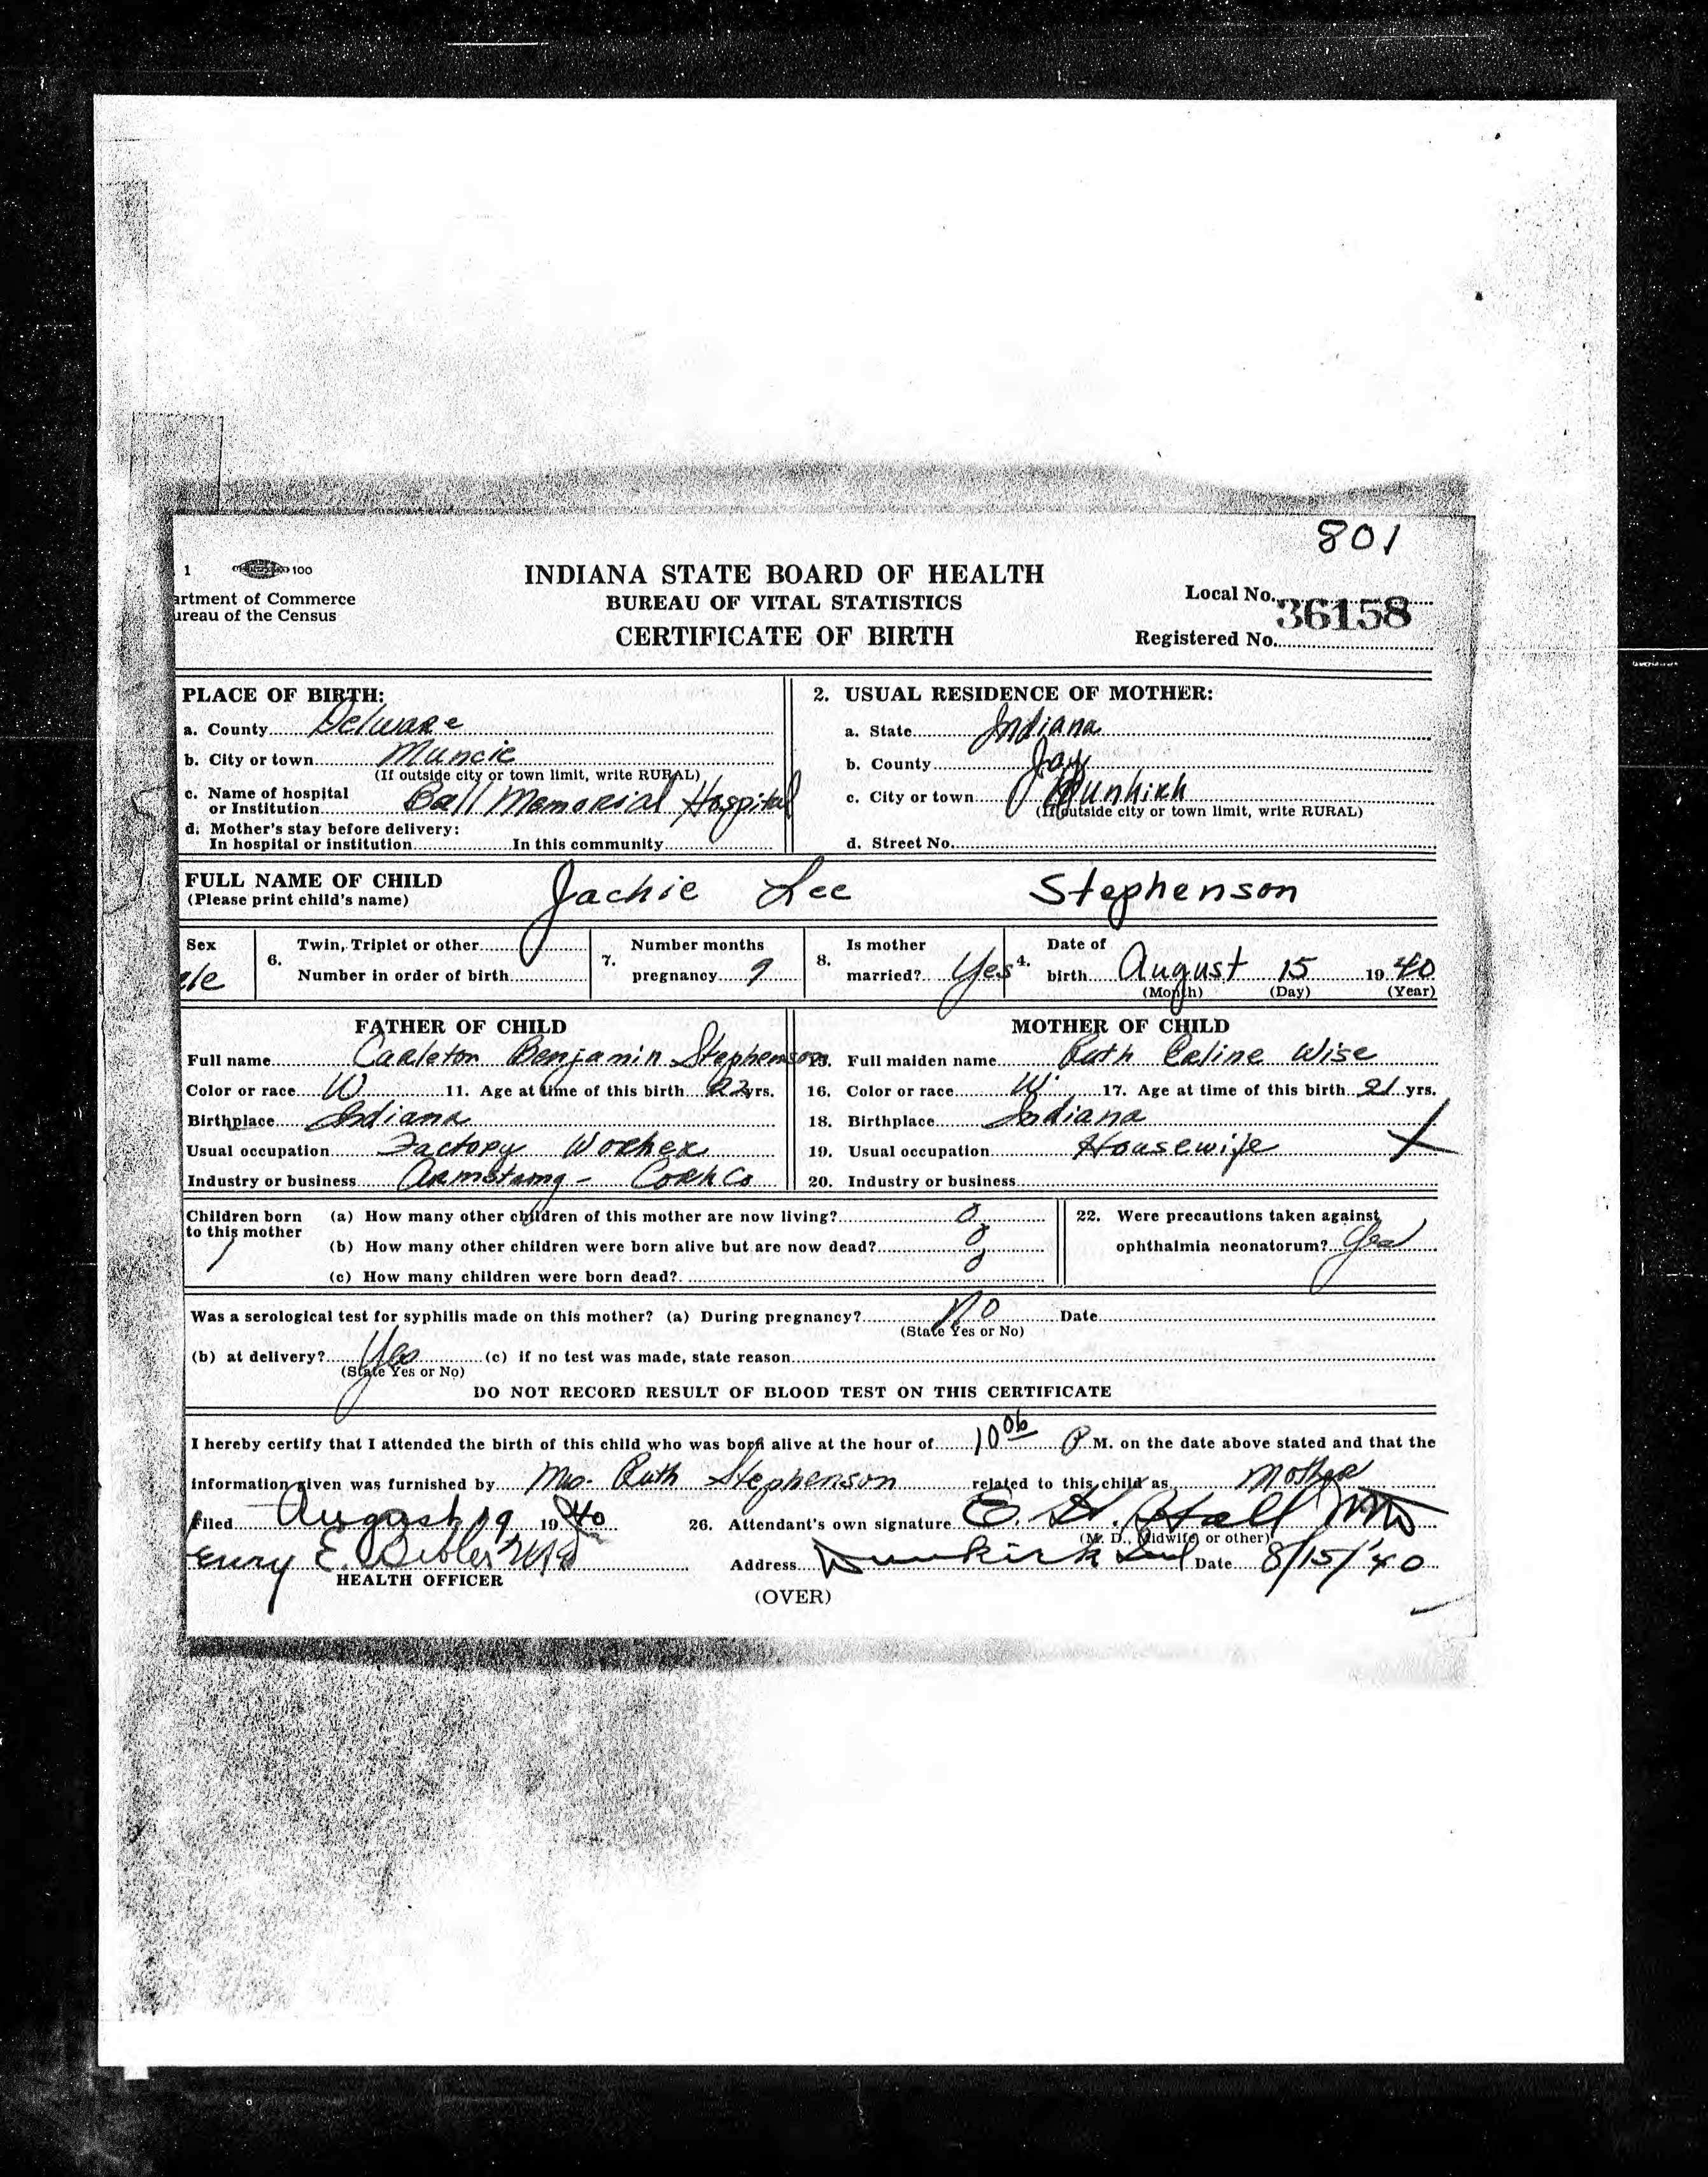 801
1 100
artment of Commerce
ureau of the Census
INDIANA STATE BOARD OF HEALTH
BUREAU OF VITAL STATISTICS
CERTIFICATE OF BIRTH
Local No.
36158
Registered No.
PLACE OF BIRTH:
a. County Delware
b. City or town Muncie
(If outside city or town limit, write RURAL)
c. Name of hospital
or Institution Ball Memorial Hospital
d. Mother's stay before delivery:
In hospital or institution In this community
2. USUAL RESIDENCE OF MOTHER:
a. State Indiana
b. County Jay
c. City or town Dunkirk
(If outside city or town limit, write RURAL)
d. Street No.
FULL NAME OF CHILD Jackie Lee Stephenson
(Please print child's name)
Sex
ale
6. Twin, Triplet or other
Number in order of birth
7. Number months
pregnancy 9
8. Is mother
married? Yes
4. Date of
birth August 15 1940
(Month) (Day) (Year)
FATHER OF CHILD
Full name Carleton Benjamin Stephenson
Color or race W 11. Age at time of this birth 22 yrs.
Birthplace Indiana
Usual occupation Factory Worker
Industry or business Armstrong - Cork Co
MOTHER OF CHILD
15. Full maiden name Ruth Wise
16. Color or race W 17. Age at time of this birth 21 yrs.
18. Birthplace Indiana
19. Usual occupation Housewife
20. Industry or business
Children born
to this mother
1
(a) How many other children of this mother are now living? 0
(b) How many other children were born alive but are now dead? 0
(c) How many children were born dead? 0
22. Were precautions taken against
ophthalmia neonatorum? Yes
Was a serological test for syphilis made on this mother? (a) During pregnancy? No Date
(State Yes or No)
(b) at delivery? Yes (c) if no test was made, state reason
(State Yes or No)
DO NOT RECORD RESULT OF BLOOD TEST ON THIS CERTIFICATE
I hereby certify that I attended the birth of this child who was born alive at the hour of 10 06 P M. on the date above stated and that the
information given was furnished by Mrs. Ruth Stephenson related to this child as Mother
Filed August 19, 1940 26. Attendant's own signature E. H. Hall MD
(M. D., Midwife or other)
enry E. Bibler MD Address Dunkirk Ind Date 8/15/'40
HEALTH OFFICER
(OVER)